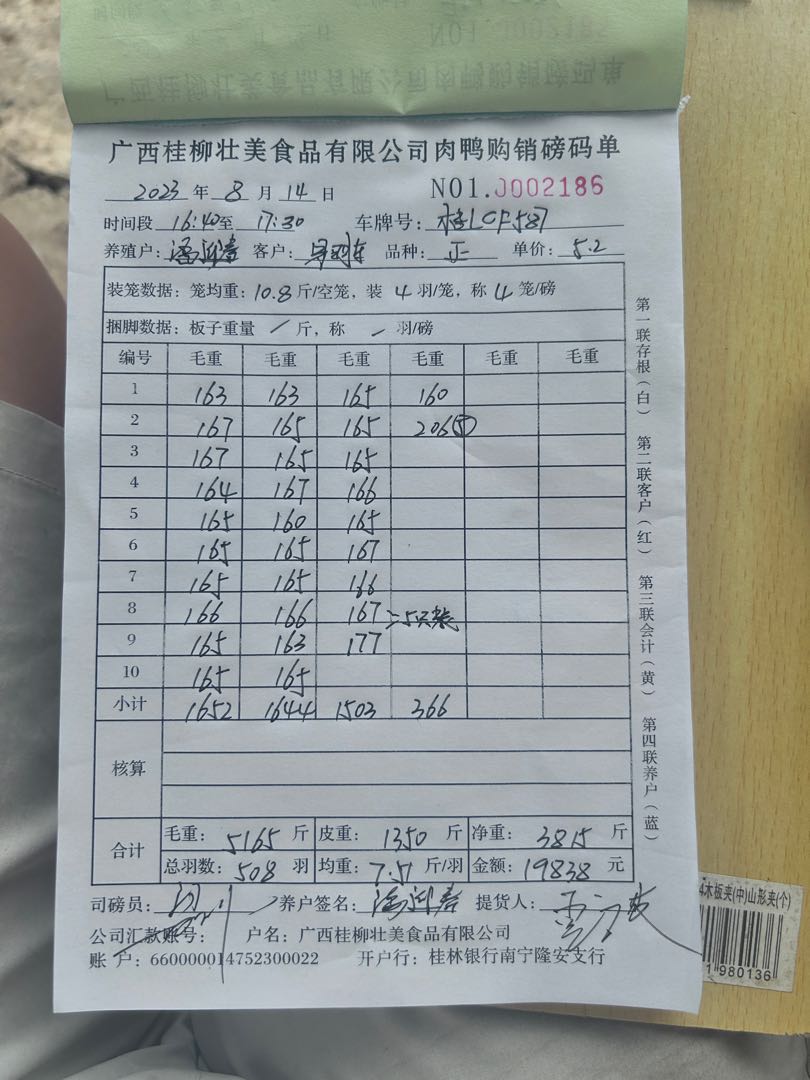 NO1.J002185
广西桂柳壮美食品有限公司肉鸭购销磅码单
广西桂柳壮美食品有限公司肉鸭购销磅码单
2023 年 8 月 14 日 NO1.J002186
时间段 16:40 至 17:30 车牌号:
养殖户: 客户: 品种: 正 单价: 5.2
装笼数据: 笼均重: 10.8 斤/空笼, 装 4 羽/笼, 称 4 笼/磅
捆脚数据: 板子重量 / 斤, 称 / 羽/磅
编号 毛重 毛重 毛重 毛重 毛重 毛重
1 163 163 165 160
2 167 165 165 206⑤
3 167 165 165
4 164 167 166
5 165 160 165
6 165 165 167
7 165 165 166
8 166 166 167 5只装
9 165 163 177
10 165 165
小计 1652 1644 1503 366
核算
合计 毛重: 5165 斤 皮重: 1350 斤 净重: 3815 斤
总羽数: 508 羽 均重: 7.51 斤/羽 金额: 19838 元
司磅员: 养户签名: 提货人:
公司汇款账号: 户名: 广西桂柳壮美食品有限公司
账 户: 660000014752300022 开户行: 桂林银行南宁隆安支行
第一联存根(白) 第二联客户(红) 第三联会计(黄) 第四联养户(蓝)
4木板夹(中)山形夹(个)
1 980136